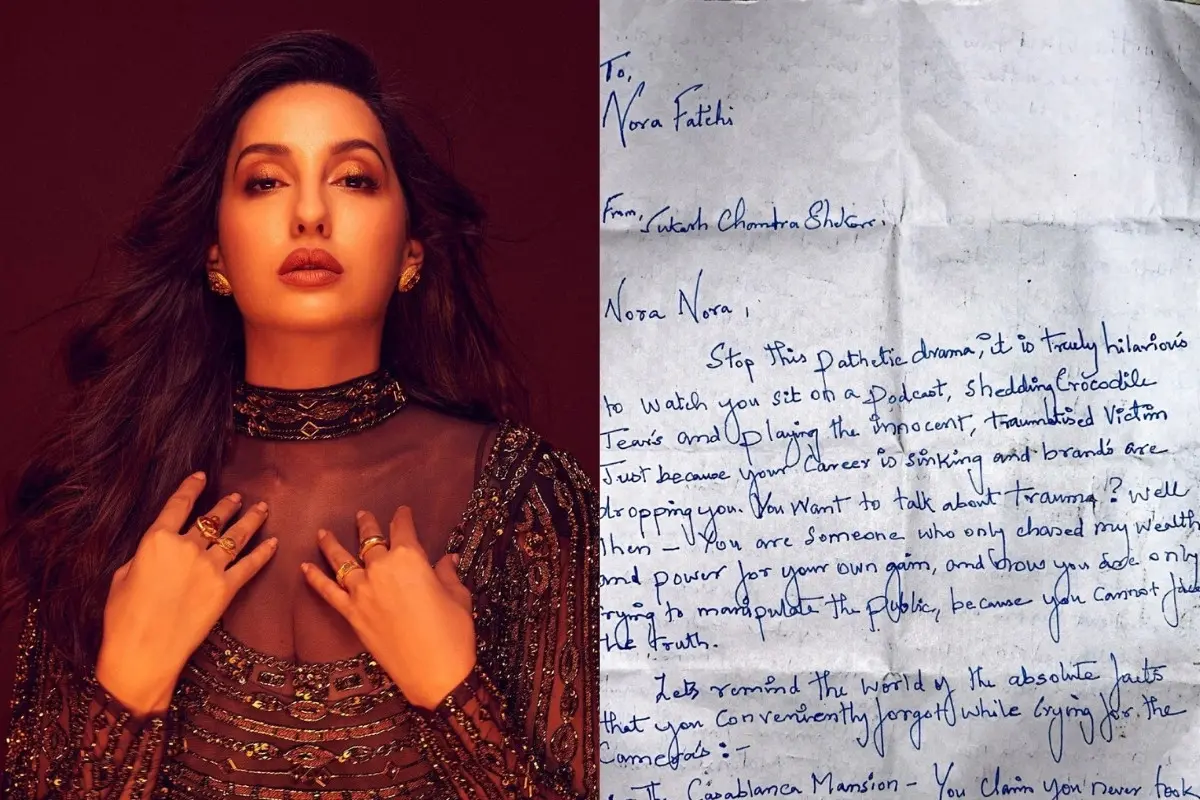 To,
Nora Fatehi
From, Sukash Chandra Shekar.
Nora Nora,
Stop this pathetic drama, it is truely hilarious
to watch you sit on a Podcast, Shedding Crocodile
Tears and playing the innocent, traumatised Victim
Just because your Career is sinking and brands are
dropping you. You want to talk about trauma? Well
then - You are someone who only chased my wealth
and power for your own gain, and now you are only
trying to manipulate the public, because you cannot face
the truth.
Lets remind the world of the absolute facts
that you conveniently forgot while crying for the
Cameras :-
The Casablanca Mansion - You claim you never took